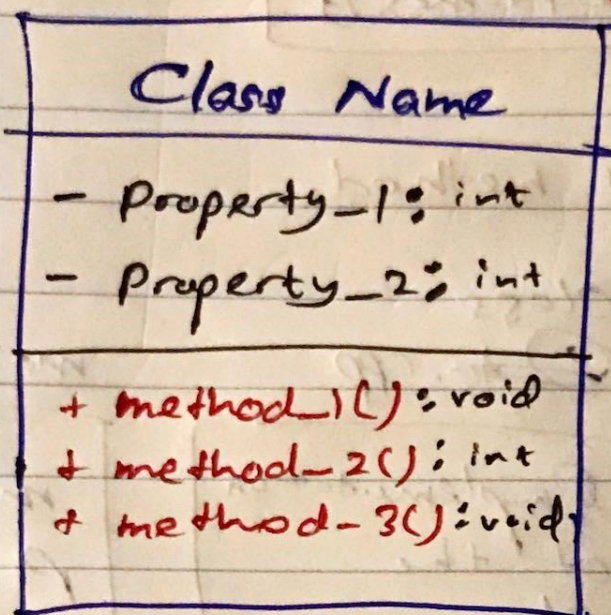 Class Name
- Property_1: int
- Property_2: int
+ method_1(): void
+ method_2(): int
+ method_3(): void